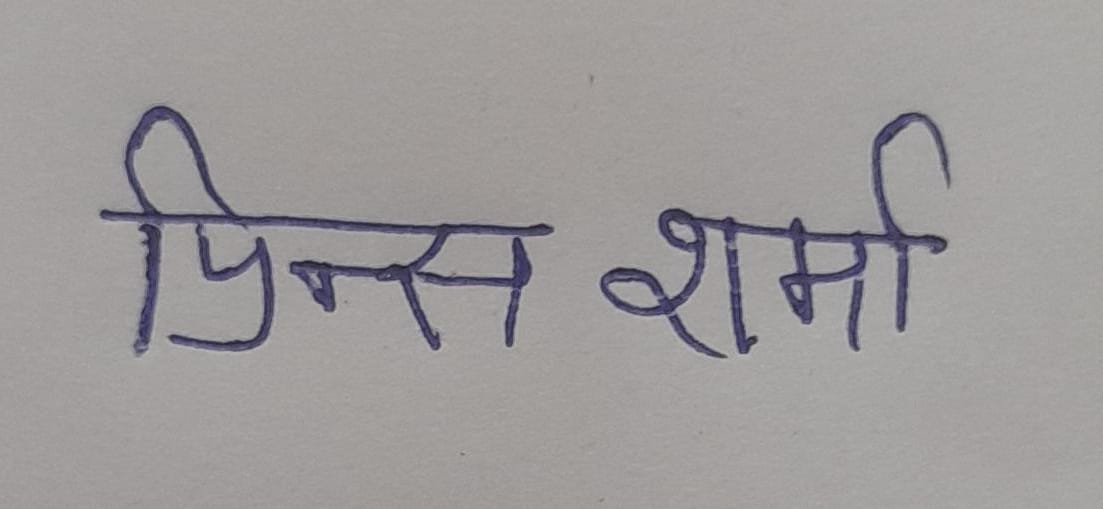 प्रिन्स शर्मा